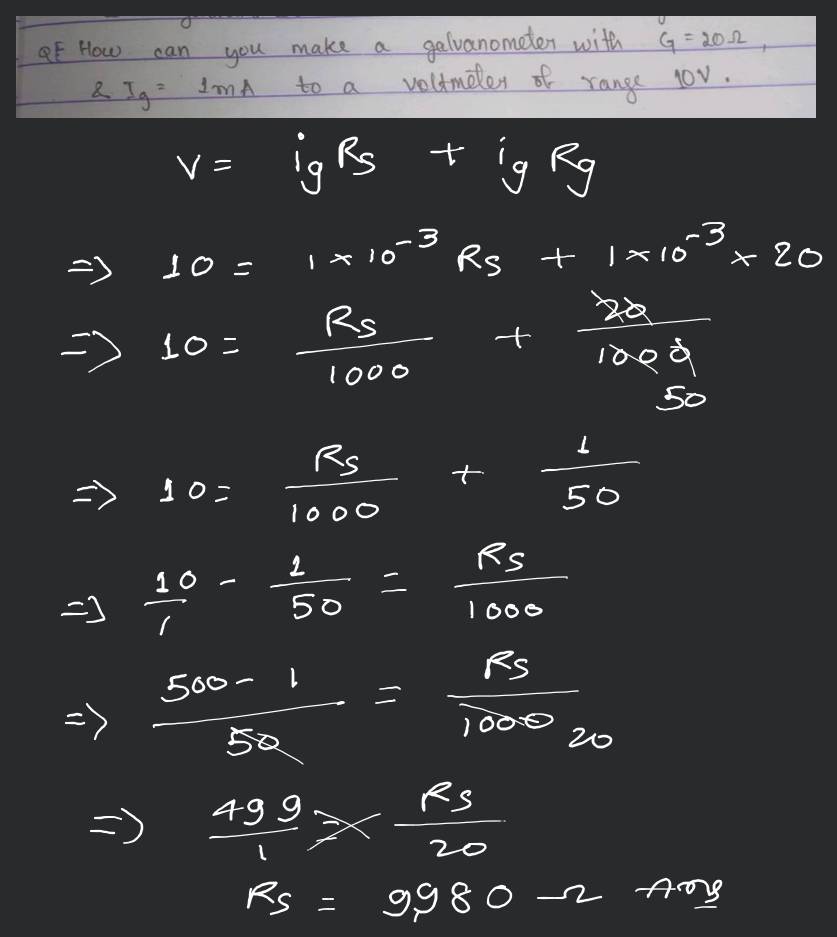 QF How can you make a galvanometer with G = 20Ω,
& Ig = 1mA to a voltmeter of range 10V.
V = ig Rs + ig Rg
=> 10 = 1 × 10⁻³ Rs + 1 × 10⁻³ × 20
=> 10 = Rs/1000 + 20/1000 50
=> 10 = Rs/1000 + 1/50
=> 10/1 - 1/50 = Rs/1000
=> 500 - 1/50 = Rs/1000 20
=> 499/1 = Rs/20
Rs = 9980 Ω Ans